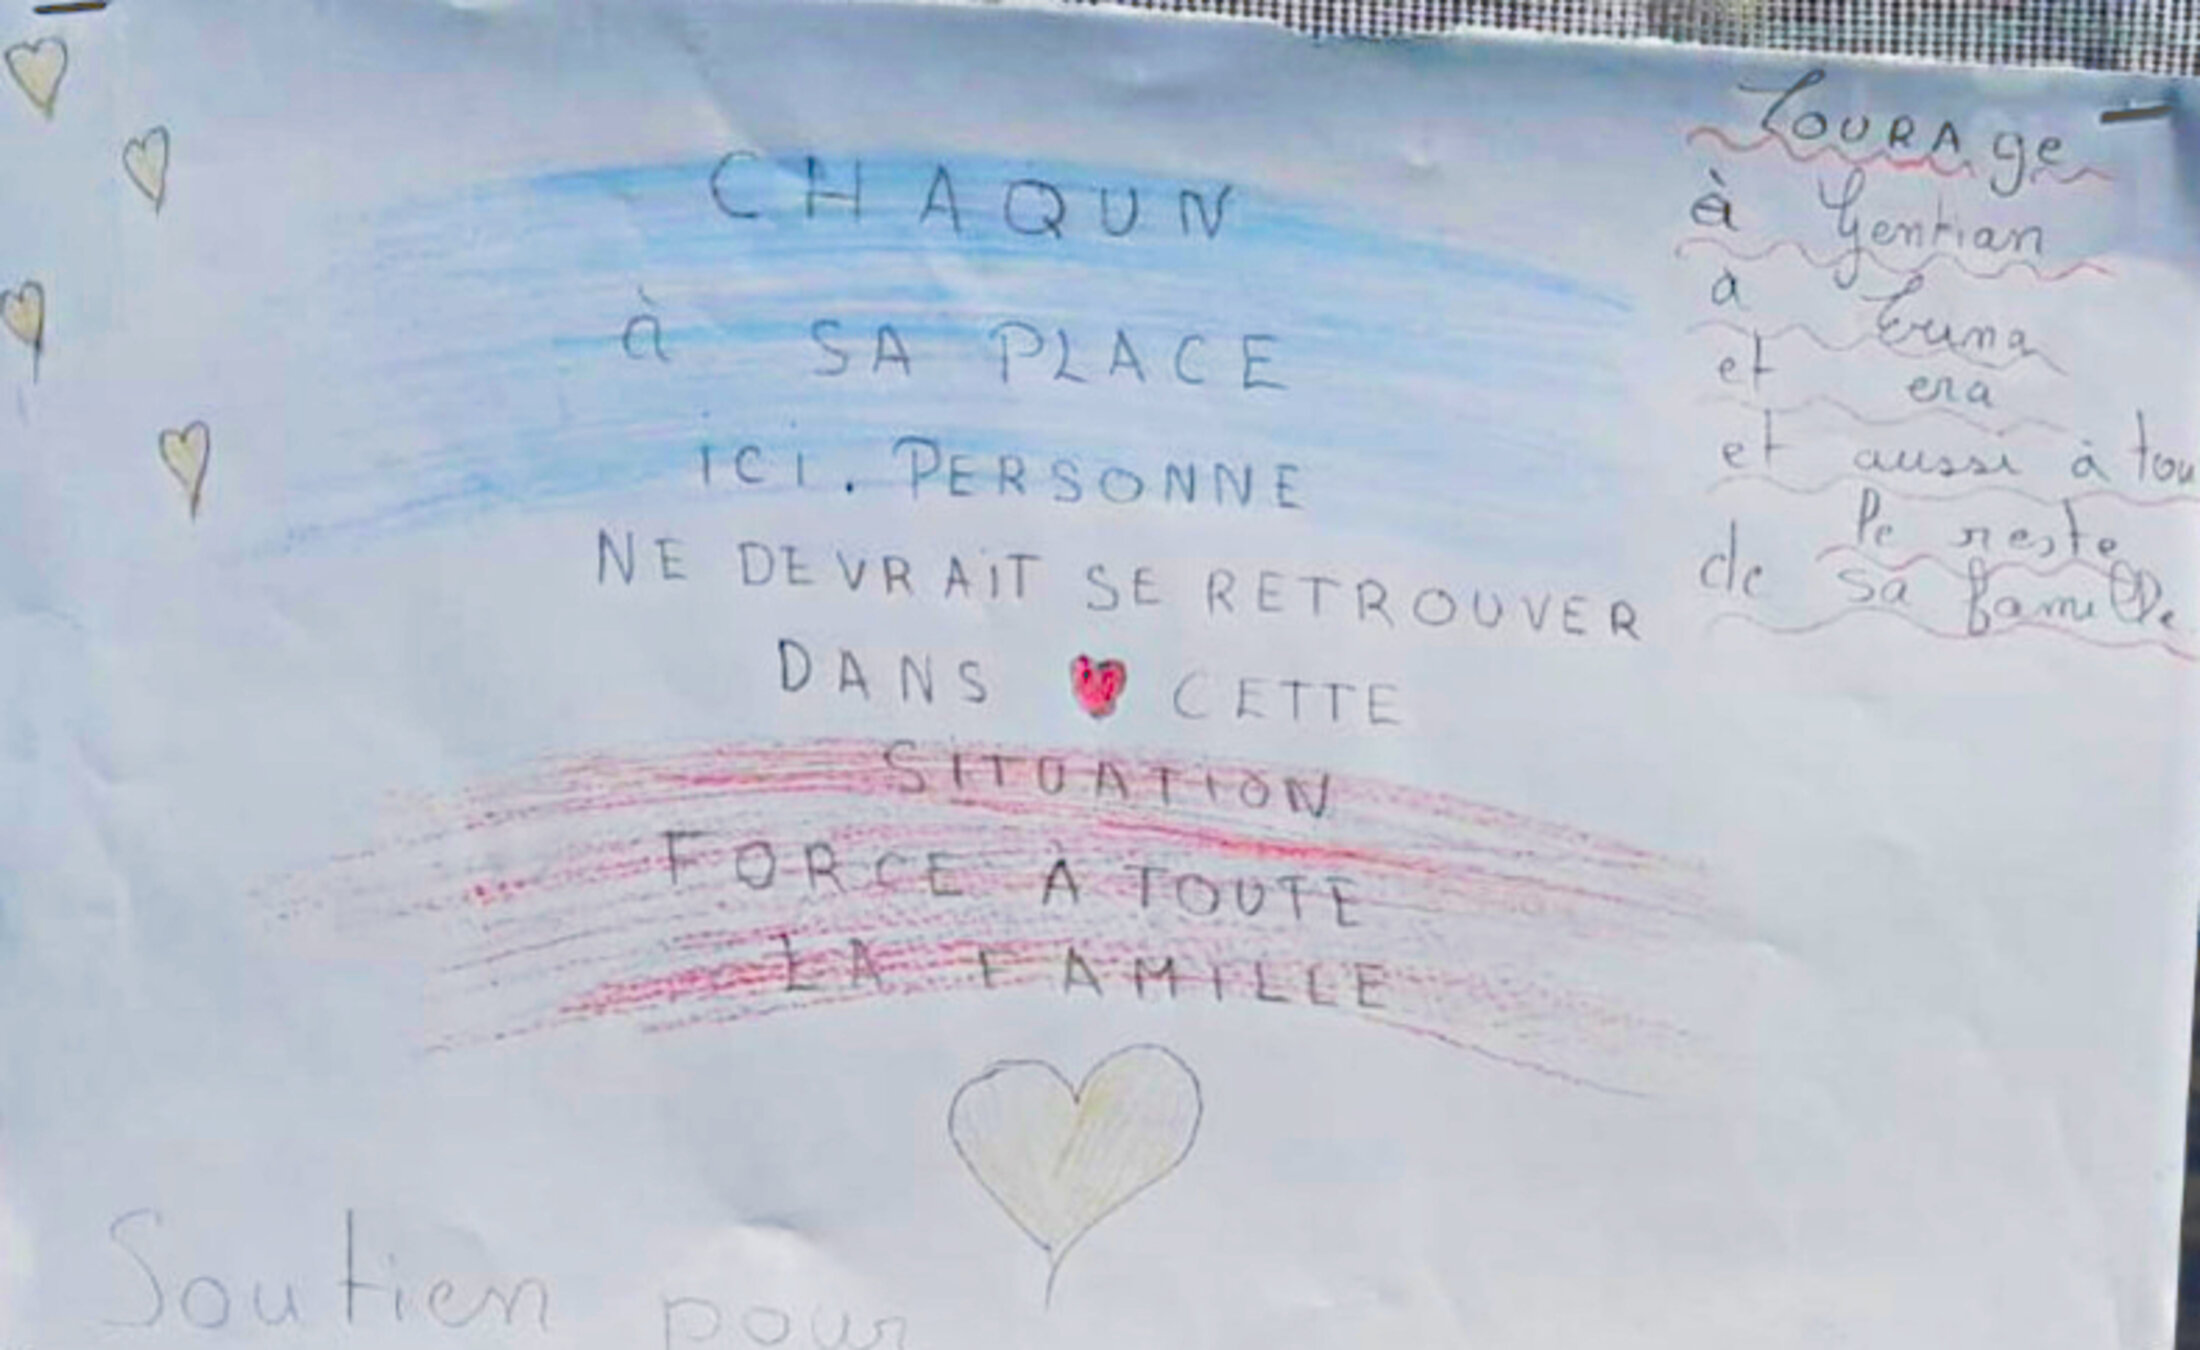 CHAQUN
à SA PLACE
ici. PERSONNE
NE DEVRAiT SE RETROUVER
DANS CETTE
SITUATION
FORCE À TOUTE
LA FAMILLE
Soutien pour
COURAge
à Gentian
a Eruna
et era
et aussi à tou
le reste
de sa famille